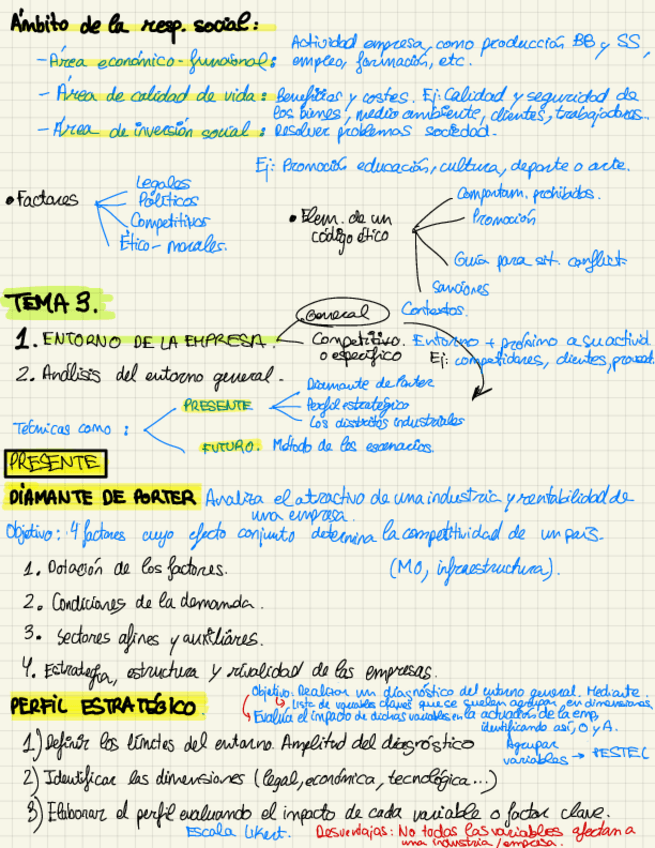 Ámbito de la resp. social:
- Área económico-funcional: Actividad empresa, como producción BB y SS,
empleo, formación, etc.
- Área de calidad de vida: Beneficios y costes. Ej: Calidad y seguridad de
los bienes, medio ambiente, clientes, trabajadores.
- Área de inversión social: Resolver problemas sociedad.
Ej: Promoción educación, cultura, deporte o arte.
• Factores
Legales
Políticos
Competitivos
Ético-morales.
• Elem. de un
código ético
Comportam. prohibidos.
Promoción
Guía para sit. conflict.
Sanciones
Contextos.
TEMA 3.
1. ENTORNO DE LA EMPRESA.
General
Competitivo. Entorno + próximo a su activid.
o específico Ej: competidores, clientes, proveed.
2. Análisis del entorno general.
Técnicas como:
PRESENTE
Diamante de Porter
Perfil estratégico
Los distritos industriales
FUTURO. Método de los escenarios.
PRESENTE
DIAMANTE DE PORTER Analiza el atractivo de una industria y rentabilidad de
una empresa.
Objetivo: 4 factores cuyo efecto conjunto determina la competitividad de un país.
1. Dotación de los factores. (MO, infraestructura).
2. Condiciones de la demanda.
3. Sectores afines y auxiliares.
4. Estrategia, estructura y rivalidad de las empresas.
PERFIL ESTRATÉGICO.
Objetivo: Realizar un diagnóstico del entorno general. Mediante.
Lista de variables claves que se suelen agrupar en dimensiones.
Evalúa el impacto de dichas variables en la actuación de la emp,
identificando así, O y A.
1) Definir los límites del entorno. Amplitud del diagnóstico
Agrupar
variables → PESTEL
2) Identificar las dimensiones (legal, económica, tecnológica...)
3) Elaborar el perfil evaluando el impacto de cada variable o factor clave.
Escala Likert. Desventajas: No todas las variables afectan a
una industria/empresa.